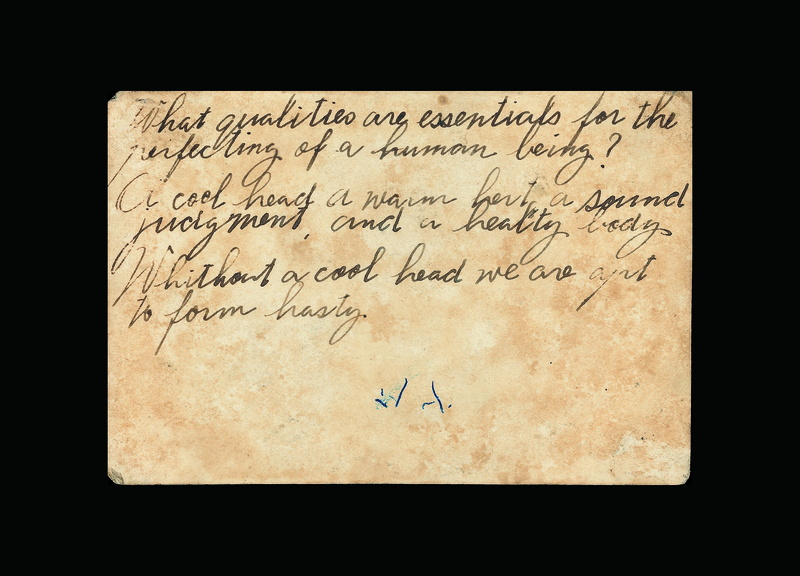 What qualities are essentials for the
perfecting of a human being?
A cool head a warm hert, a sound
judgment, and a healty body
Whithout a cool head we are apt
to form hasty